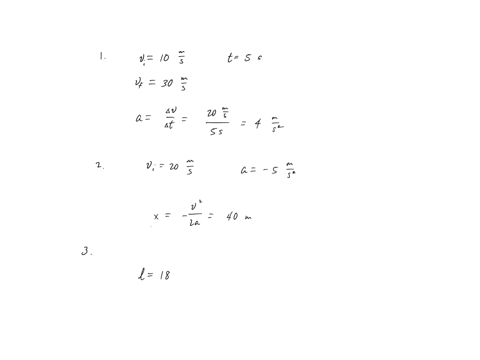 1. vᵢ = 10 m/s t = 5 s
v_f = 30 m/s
a = Δv/Δt = 20 m/s / 5 s = 4 m/s²
2. vᵢ = 20 m/s a = -5 m/s²
x = -v²/2a = 40 m
3.
l = 18